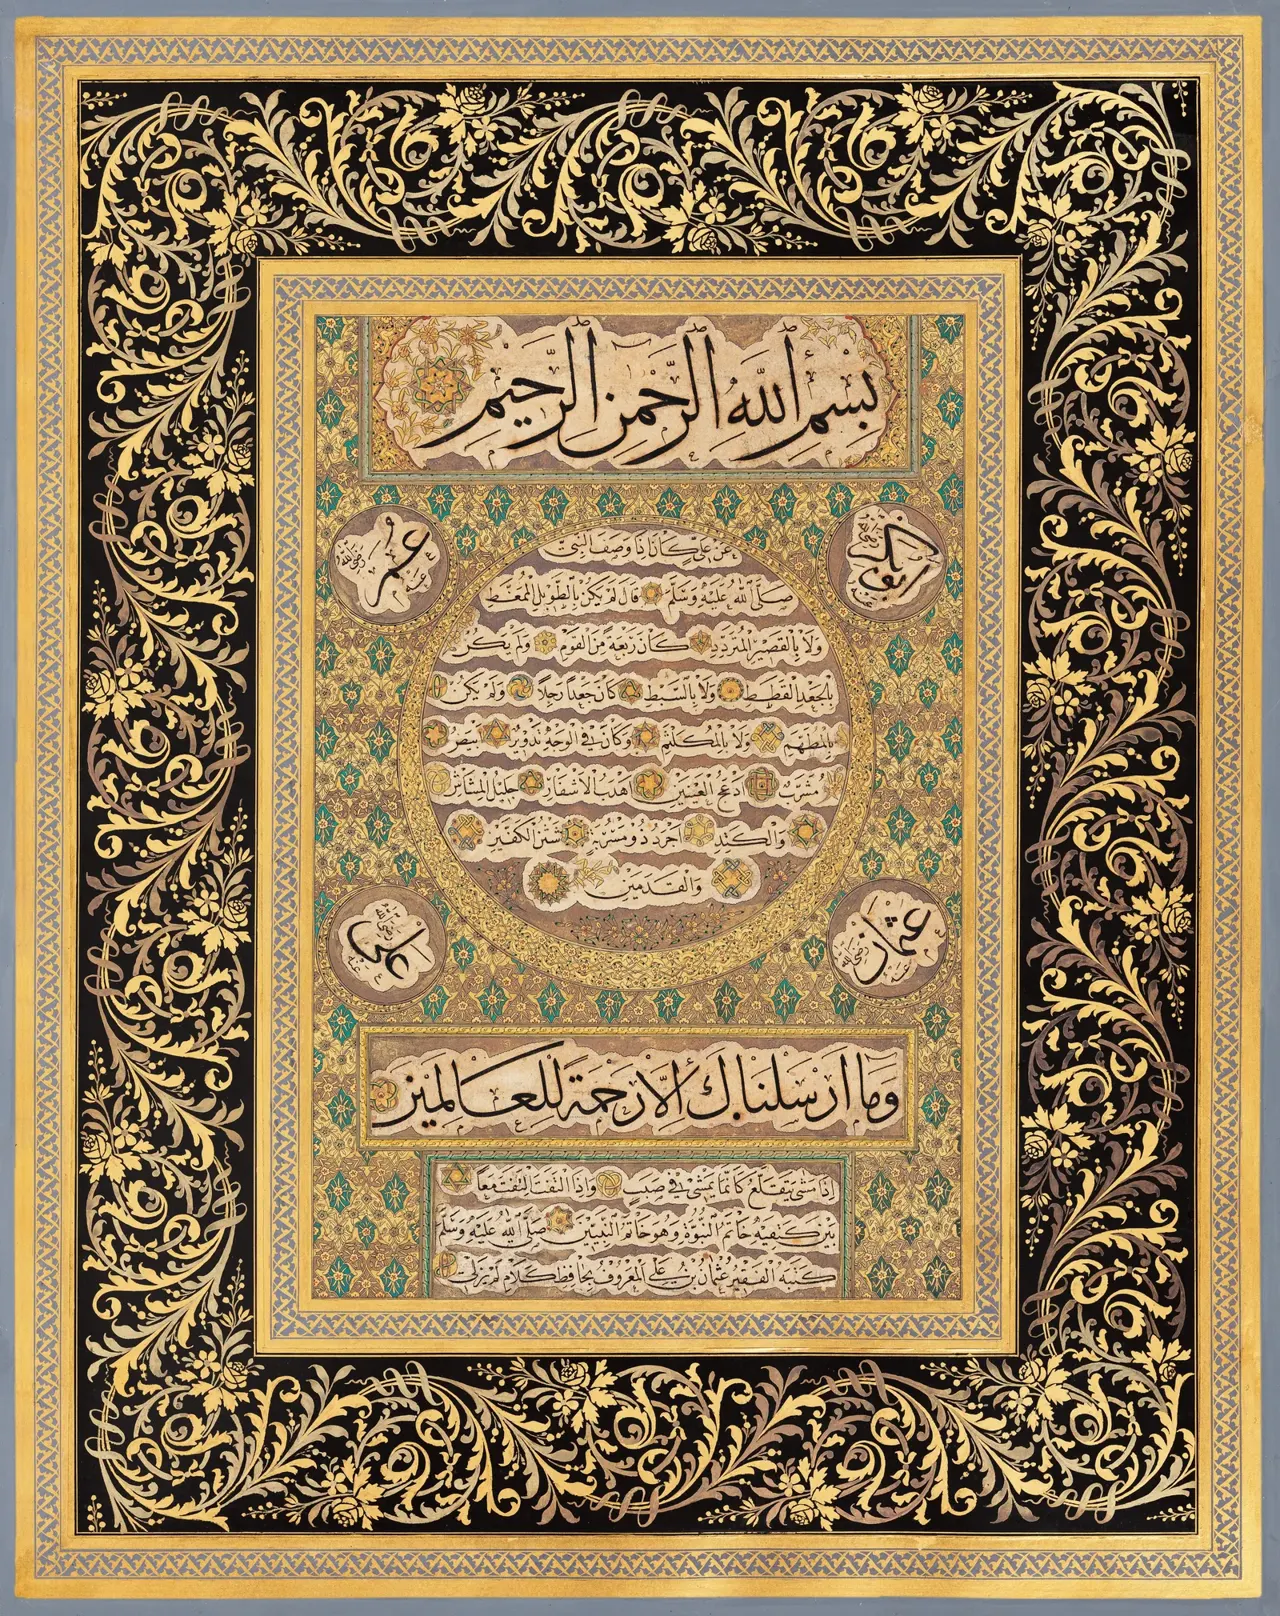 بِسْمِ اللّٰهِ الرَّحْمٰنِ الرَّحِيمِ
ابو بكر رضى الله عنه
عمر رضى الله عنه
عن علي كان اذا وصف النبي
صلى الله عليه وسلم قال لم يكن بالطويل الممغط
ولا بالقصير المتردد كان ربعة من القوم ولم يكن
بالجعد القطط ولا بالسبط كان جعدا رجلا ولم يكن
بالمطهم ولا بالمكلثم وكان في الوجه تدوير ابيض
مشرب ادعج العينين اهدب الاشفار جليل المشاش
والكتد اجرد ذو مسربة شثن الكفين
والقدمين
عثمان رضى الله عنه
على رضى الله عنه
وما ارسلناك الا رحمة للعالمين
اذا مشى يتقلع كانما يمشي في صبب واذا التفت التفت معا
بين كتفيه خاتم النبوة وهو خاتم النبيين صلى الله عليه وسلم
كتبه الفقير عثمان بن علي المعروف بحافظ كلام لم يزل